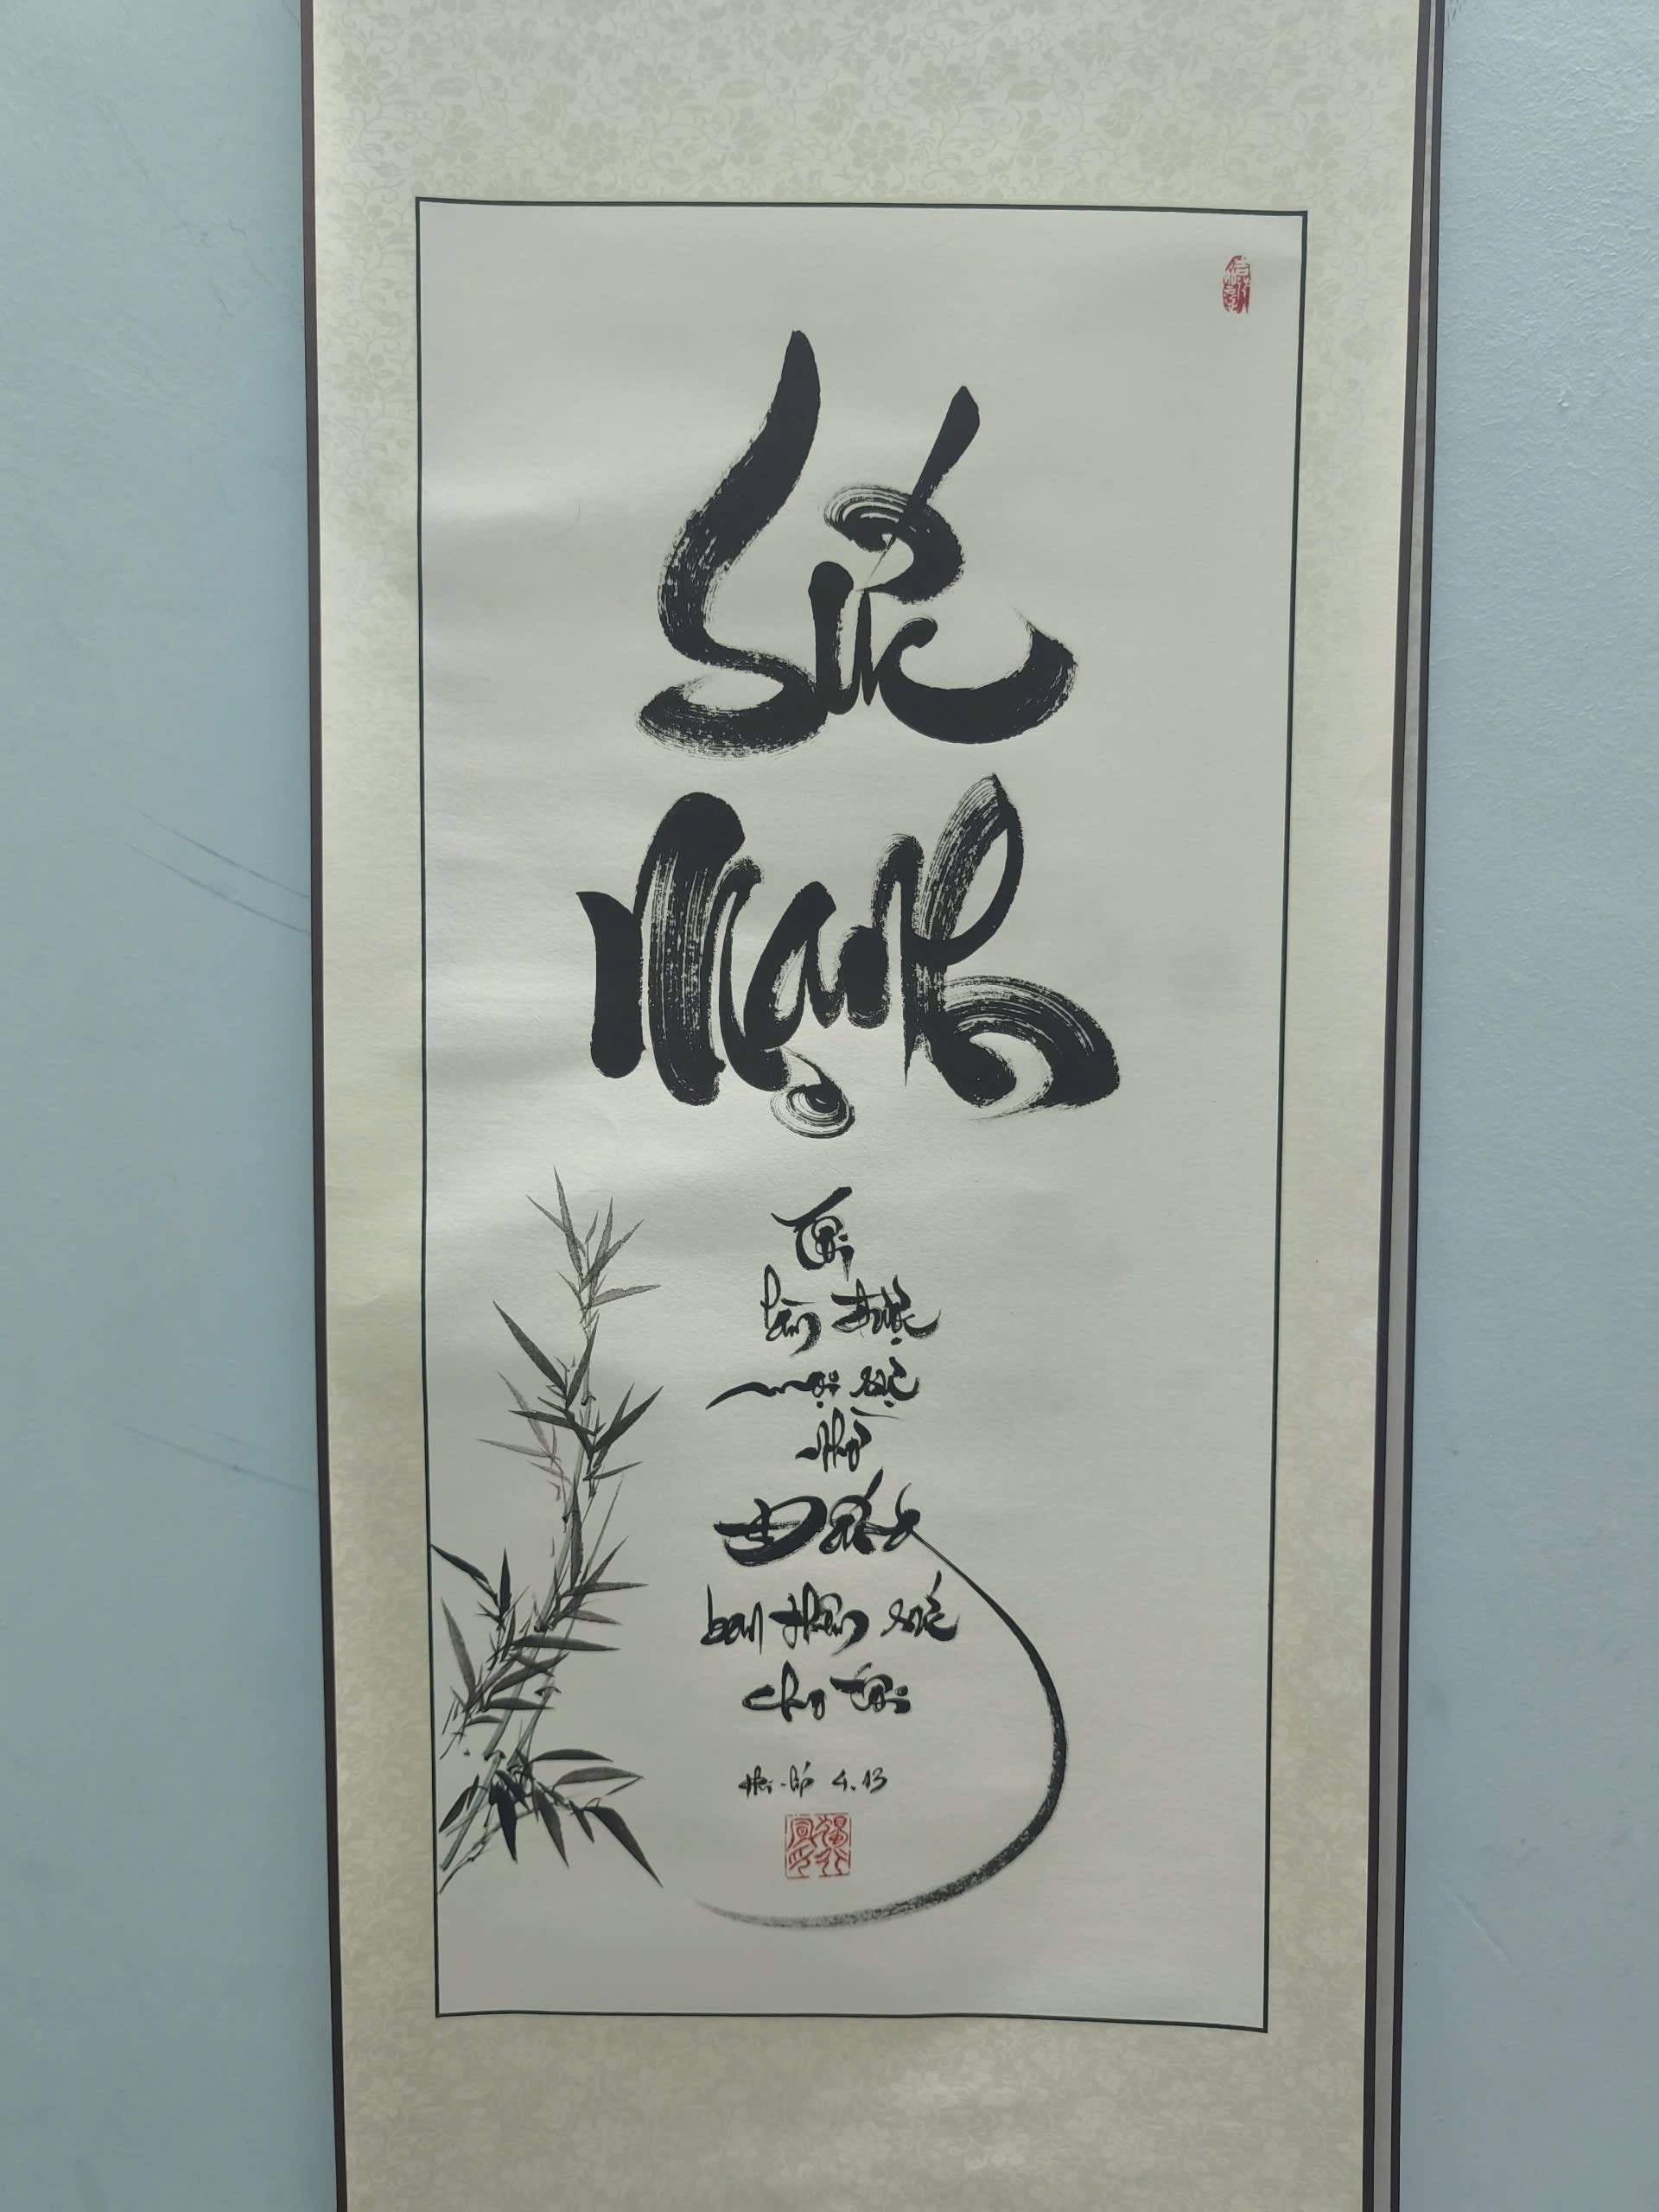 Sức
Mạnh
Tôi
làm được
mọi sự
nhờ
Đấng
ban thêm sức
cho tôi
Phi-líp 4.13